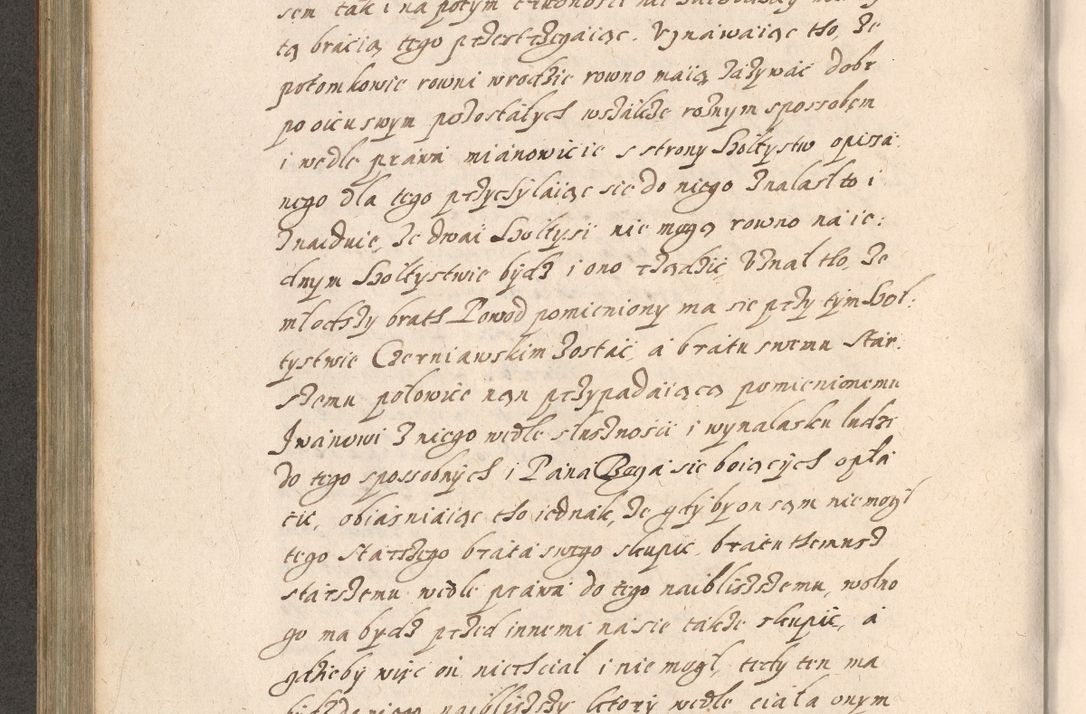 sem tak i na potym
tą bracią tego przestrzegaiąc. Uznawaiąc tho, że
potomkowie rowni wrodzie rowno maią zażywać dobr
po oicu swym pozostałych wszakże rożnym spossobem
i wedle prawa mianowicie s strony Sholtystw opisa
nego dla tego przychylaiąc sie do niego znalasł to i
znaiduie, że dwai Sholtysi nie mogą rowno na ie:
dnym Sholtystwie bydz i ono rządzić, Uznał tho, że
młodszy brath Powod pomieniony ma sie przy tym Shol:
tystwie Czerniawskim zostać, a bratu swemu star
szemu połowice nąn przypadaiącą pomienionemu
Jwanowi z niego wedle słusznosci i wynalasku ludzi
do tego spossobnych i Pana Boga sie boiących opła
cic, obiasniaiąc tho iednak, że gdyby on sąm nie mogł
tego starszego brata swego skupic, bratu themusz
starszemu wedle prawa do tego naibliszszemu, wolno
go ma bydz przed innemi naisie takze skupic, a
gdzieby więc on niechciał i nie mogł, tedy ten ma
naibliższy ktory wedle ciała onym